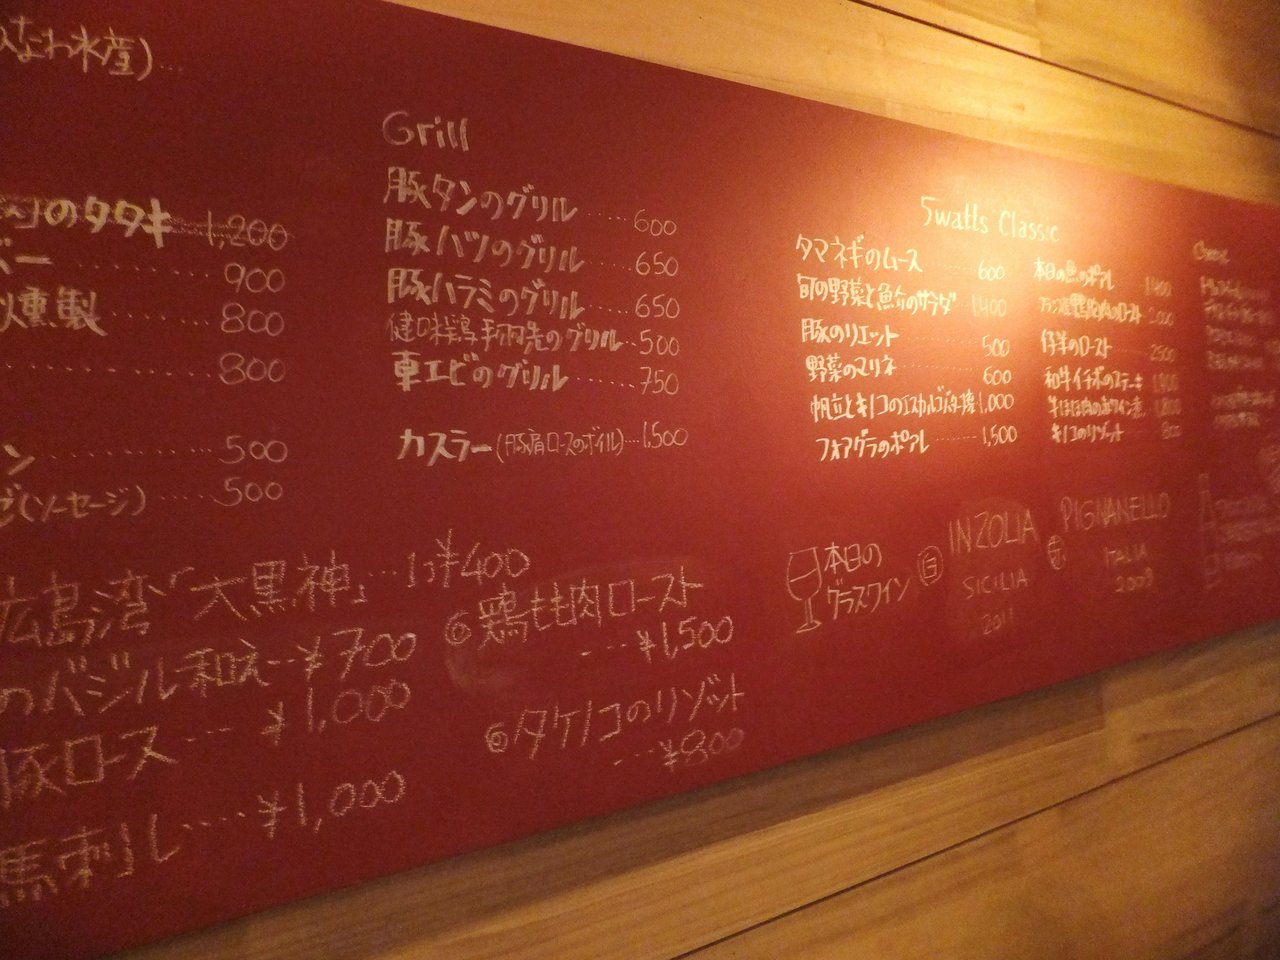 なわ水産)...
のタタキ 1,200
バー ........ 900
燻製 ..... 800
........ 800
ン ........ 500
(ソーセージ) ..... 500
Grill
豚タンのグリル ..... 600
豚ハツのグリル ..... 650
豚ハラミのグリル ..... 650
健味鶏手羽先のグリル ... 500
車エビのグリル ...... 750
カスラー(豚肩ロースのボイル)...1,500
5watts Classic
タマネギのムース ...... 600
旬の野菜と魚介のサラダ ... 1400
豚のリエット ........ 500
野菜のマリネ ........ 600
帆立とキノコのエスカルゴバター焼 1,000
フォアグラのポアレ ...... 1,500
本日の魚のポアレ 1400
仔羊のロースト ..... 2500
和牛イチボのステーキ 1,900
牛ほほ肉の赤ワイン煮 1,800
キノコのリゾット ..... 800
広島湾「大黒神」... 1コ¥400
のバジル和え...¥700
豚ロース .... ¥1,000
馬刺し .... ¥1,000
◎鶏もも肉ロースト
.... ¥1,500
◎タケノコのリゾット
.... ¥800
本日の
グラスワイン
白 INZOLIA
SICILIA
2011
赤 PIGNANELLO
ITALIA
2009